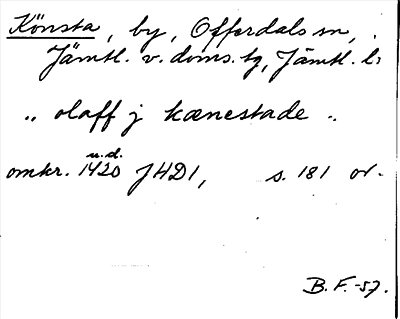 Könsta, by, Offerdals sn,
Jämtl. v. doms. tg, Jämtl. l:
„ olaff j kænestade „
u.d.
omkr. 1420 JHD1, s. 181 or.
B. F. -57.